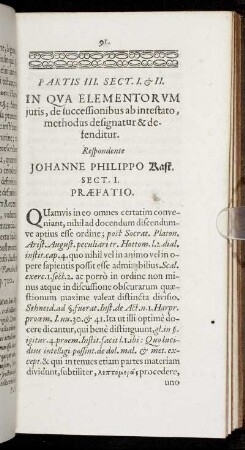 91.
PARTIS III. SECT. I. & II.
IN QVA ELEMENTORVM
juris, de successionibus ab intestato,
methodus designatur & de-
fenditur.
Respondente
JOHANNE PHILIPPO Rast.
SECT. I.
PRÆFATIO.
QUamvis in eo omnes certatim conve-
niant, nihil ad docendum discendum-
ve aptius esse ordine; post Socrat. Platon,
Arist. August. peculiari tr. Hottom. l. 2. dial.
instit. cap. 4. quo nihil vel in animo vel in
ope sapientis possit esse admirabilius. Scal.
exerc. 1. sect. 2. ac porrò in ordine non mi-
nus atque in discussione obscurarum quæ-
stionum maxime valeat distincta divisio,
Schneid. ad §. fuerat. Inst. de Act. n. 1. Harpr.
proem. I. nu. 30. & 41. Ita ut illi optimè do-
cere dicantur, qui benè distinguunt, gl. in §.
igitur. 4. proem. Instit. facit l. 1. ibi: Quo luci-
dius intelligi possint. de dol. mal. & met. ex-
cept. & qui in tenues etiam partes materiam
dividunt, subtiliter, λεπτομερῶς procedere,
uno